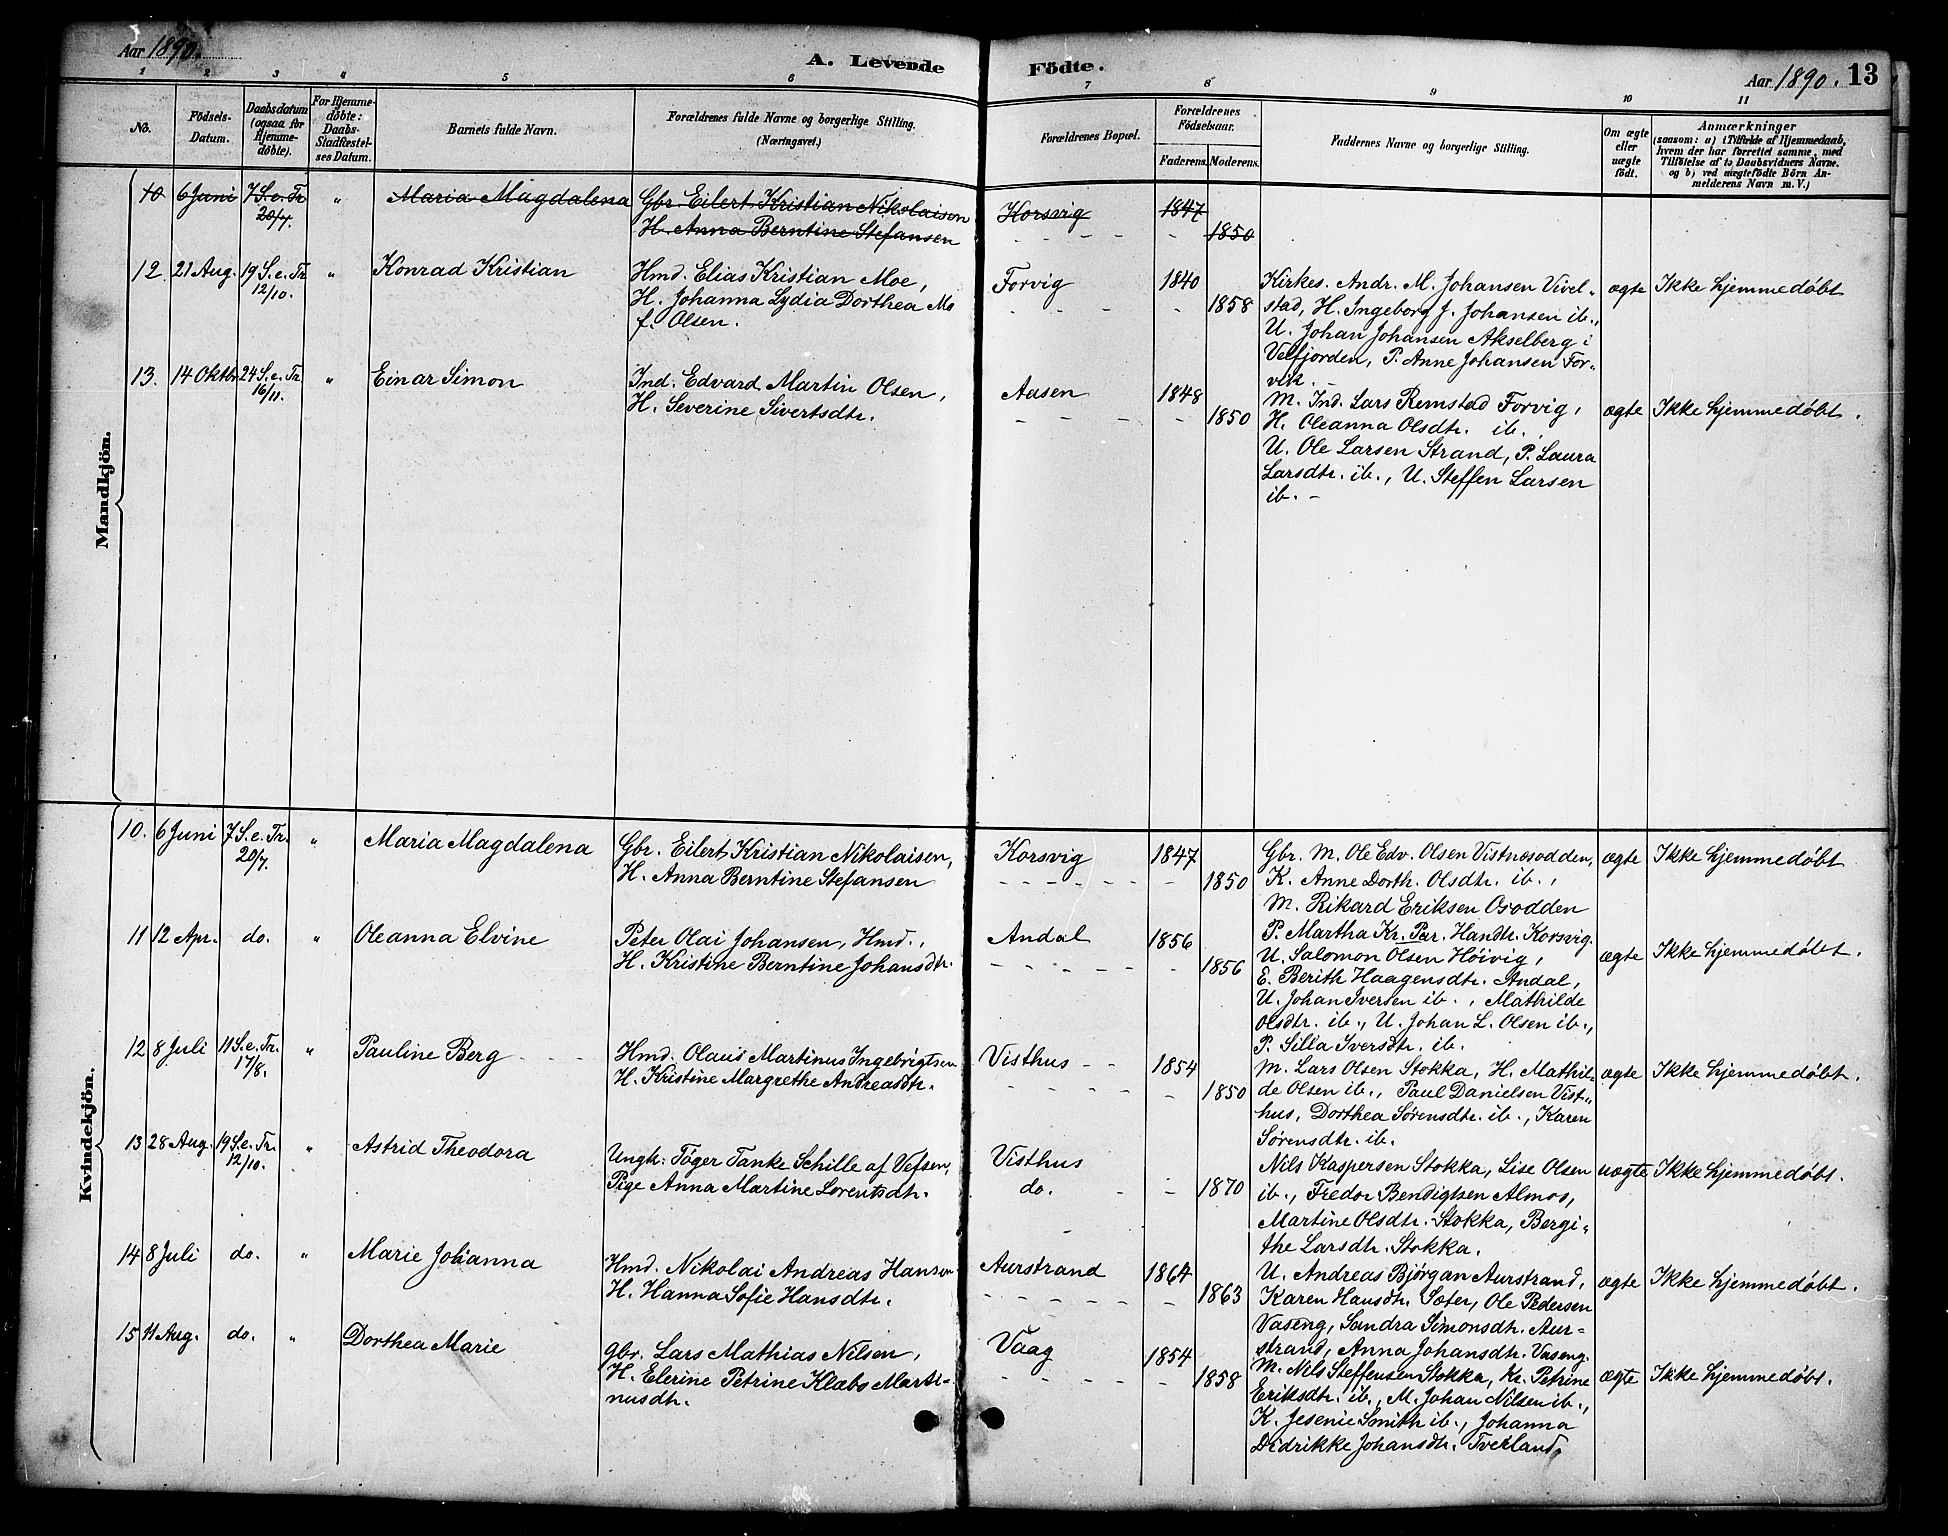 Aar 1890.
A. Levende Födte.
Aar 1890. 13
1 2 3 4 5 6 7 8 9 10 11
No.
Födsels-
Datum.
Daabsdatum
(ogsaa for
Hjemme-
døbte).
For Hjemme-
døbte:
Daabs-
Stadfæstel-
ses Datum.
Barnets fulde Navn.
Forældrenes fulde Navne og borgerlige Stilling.
(Næringsvei.)
Forældrenes Bopæl.
Forældrenes
Födselsaar.
Faderens. Moderens.
Faddernes Navne og borgerlige Stilling.
Om ægte
eller
uægte
født.
Anmærkninger
(saasom: a) i Tilfælde af Hjemmedaab,
hvem der har forrettet samme, med
Tilføielse af to Daabsvidners Navne.
og b) ved uægtefödte Börn An-
melderens Navn m. V.)
Mandkjön.
10 6 Juni 7 S. e. Tr. 20/7. " Maria Magdalena
Gbr. Eilert Kristian Nikolaisen
H. Anna Berntine Stefansen
Korsvig 1847
1850
12. 21 Aug. 19 S. e. Tr. 12/10. " Konrad Kristian
Hmd. Elias Kristian Moe,
H. Johanna Lydia Dorthea Mo
f. Olsen.
Forvig 1840
1858
Kirkes. Andr. M. Johansen Vivel-
stad, H. Ingeborg J. Johansen ib.,
U. Johan Johansen Akselberg i
Velfjorden, P. Anne Johansen For-
vik.
ægte Ikke hjemmedøbt
13. 14 Oktbr 24 S. e. Tr. 16/11. " Einar Simon
Ind. Edvard Martin Olsen,
H. Severine Sivertsdtr.
Aasen 1848
1850
M. Ind. Lars Remstad Forvig,
H. Oleanna Olsdtr. ib.,
U. Ole Larsen Strand, P. Laura
Larsdtr. ib., U. Steffen Larsen
ib. -
ægte Ikke hjemmedøbt.
Kvindekjön.
10. 6 Juni 7 S. e. Tr. 20/7. " Maria Magdalena
Gbr. Eilert Kristian Nikolaisen,
H. Anna Berntine Stefansen
Korsvig 1847
1850
Gbr. M. Ole Edv. Olsen Vistnesodden,
K. Anne Dorth. Olsdtr. ib.,
M. Rikard Eriksen Osodden
P. Martha Kr. Par. Handtr. Korsvig.
ægte Ikke hjemmedøbt
11 12 Apr. do. " Oleanna Elvine
Peter Olai Johansen, Hmd.,
H. Kristine Berntine Johansdtr.
Andal 1856
1856
U. Salomon Olsen Høivig,
E. Berith Haagensdtr. Andal,
U. Johan Iversen ib., Mathilde
Olsdtr. ib., U. Johan L. Olsen ib.,
P. Silla Iversdtr. ib.
ægte Ikke hjemmedøbt.
12 8 Juli 11 S. e. Tr. 17/8. " Pauline Berg
Hmd. Olaus Martinus Ingebrigtsen
H. Kristine Margrethe Andreasdtr.
Visthus 1854
1850
M. Lars Olsen Stokka, H. Mathil-
de Olsen ib., Paul Danielsen Vist-
hus, Dorthea Sørensdtr. ib., Karen
Sørensdtr. ib.
ægte Ikke hjemmedøbt.
13 28 Aug. 19 S. e. Tr. 12/10. " Astrid Theodora
Ungk. Tøger Tanke Schille af Vefsen,
Pige Anna Martine Lorentsdtr.
Visthus
do. 1870
Nils Kaspersen Stokka, Lise Olsen
ib., Fredor Bendigtsen Almos,
Martine Olsdtr. Stokka, Bergi-
the Larsdtr. Stokka.
uægte Ikke hjemmedøbt.
14 8 Juli do. " Marie Johanna
Hmd. Nikolai Andreas Hansen
H. Hanna Sofie Hansdtr.
Aurstrand 1864
1863
U. Andreas Bjørgan Aurstrand,
Karen Hansdtr. Sæter, Ole Pedersen
Vaseng, Sandra Simonsdtr. Aur-
strand, Anna Johansdtr. Vaseng.
ægte Ikke hjemmedøbt.
15 11 Aug. do. " Dorthea Marie
gbr. Lars Mathias Nilsen,
H. Elerine Petrine Klæbs Marti-
nusdtr.
Vaag 1854
1858
M. Nils Steffensen Stokka, Kr. Petrine
Eriksdtr. ib., M. Johan Nilsen ib.,
K. Jesenie Smith ib., Johanna
Didrikke Johansdtr. Tverland.
ægte Ikke hjemmedøbt.